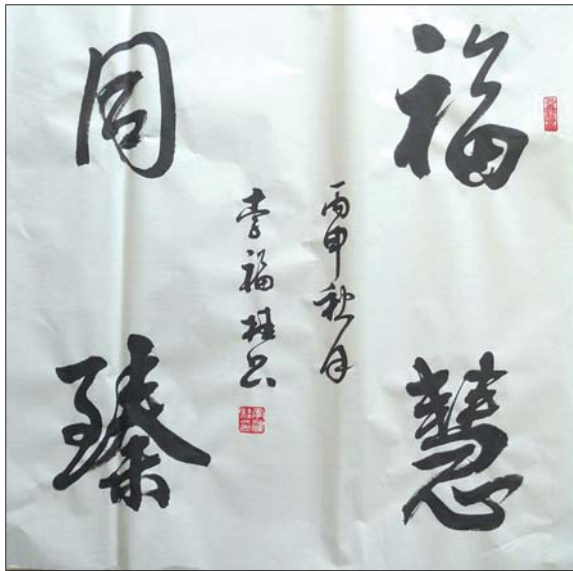 福慧
同臻
丙申秋月
李福桂书